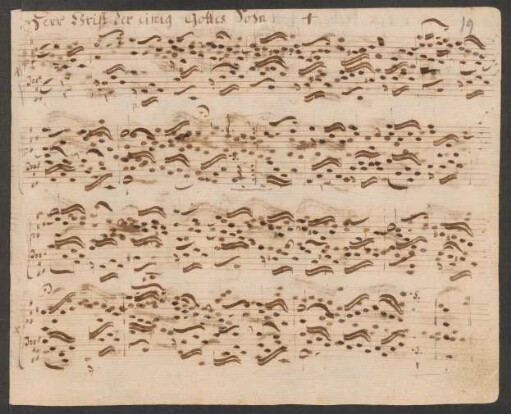 Herr Christ der einig Gottes Sohn
19